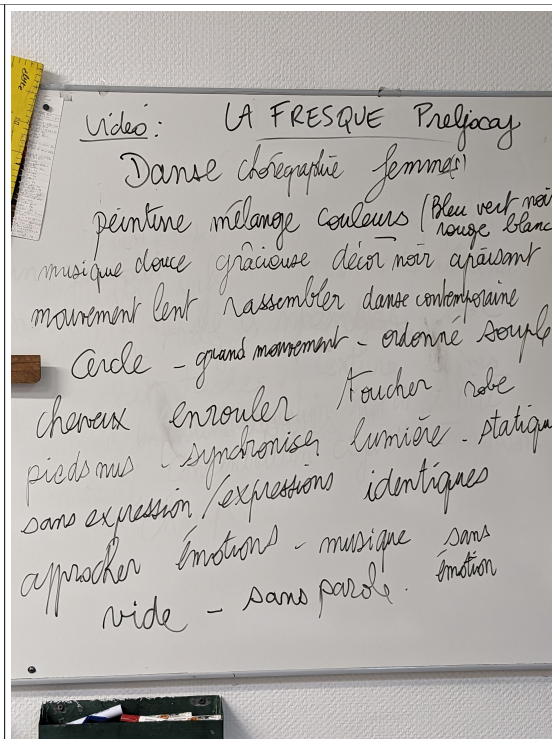 Vidéo : LA FRESQUE Preljocaj
Danse chorégraphie femme(s)
peinture mélange couleurs (Bleu vert noir
rouge blanc
musique douce grâcieuse décor noir apaisant
mouvement lent rassembler danse contemporaine
Cercle - grand mouvement - ordonné souple
cheveux enrouler / toucher robe
pieds nus - synchroniser lumière - statique
sans expression / expressions identiques
approcher émotions - musique sans
émotion
vide - sans parole.